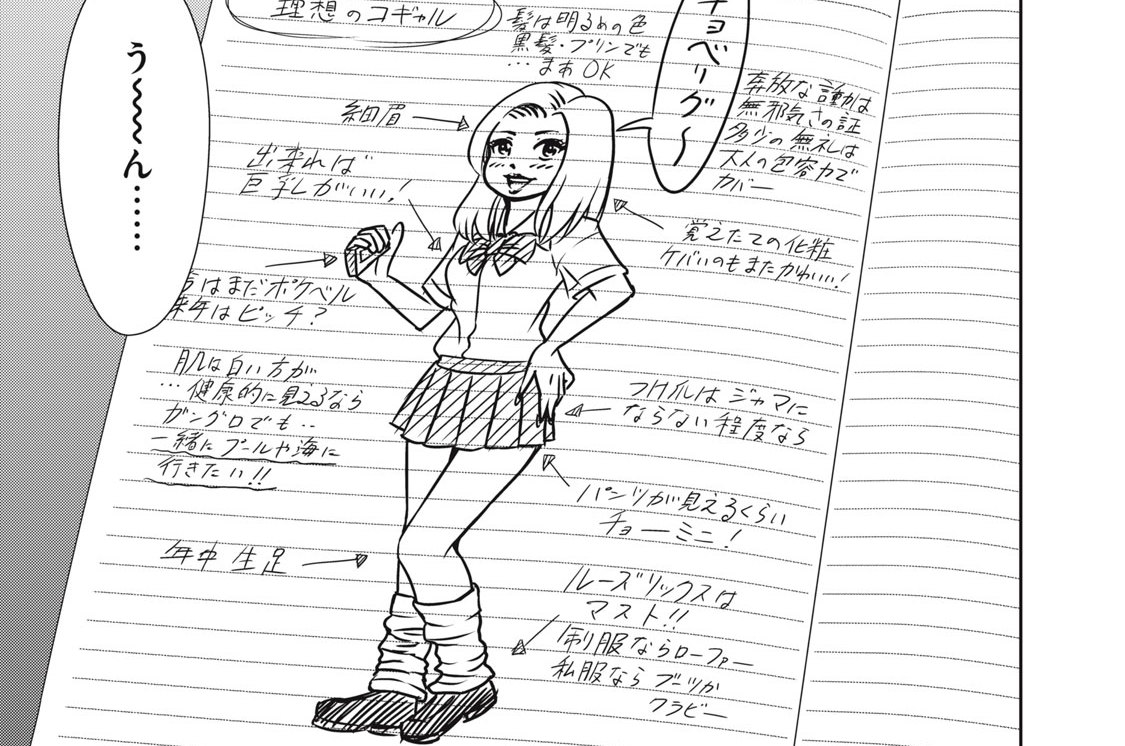 う～～～ん……
理想のコギャル
髪は明るめの色
黒髪・プリンでも
…まあOK
チョベリグ～
奔放な言動は
無邪気さの証
多少の無礼は
大人の包容力で
カバー
細眉
出来れば
巨乳がいい!
覚えたての化粧
ケバいのもまたかわいい!
はまだポケベル
来年はピッチ?
肌は白い方が
…健康的に見えるなら
ガングロでも‥
一緒にプールや海に
行きたい!!
つけ爪はジャマに
ならない程度なら
パンツが見えるくらい
チョーミニ!
年中生足
ルーズソックスは
マスト!!
制服ならローファー
私服ならブーツか
ワラビー